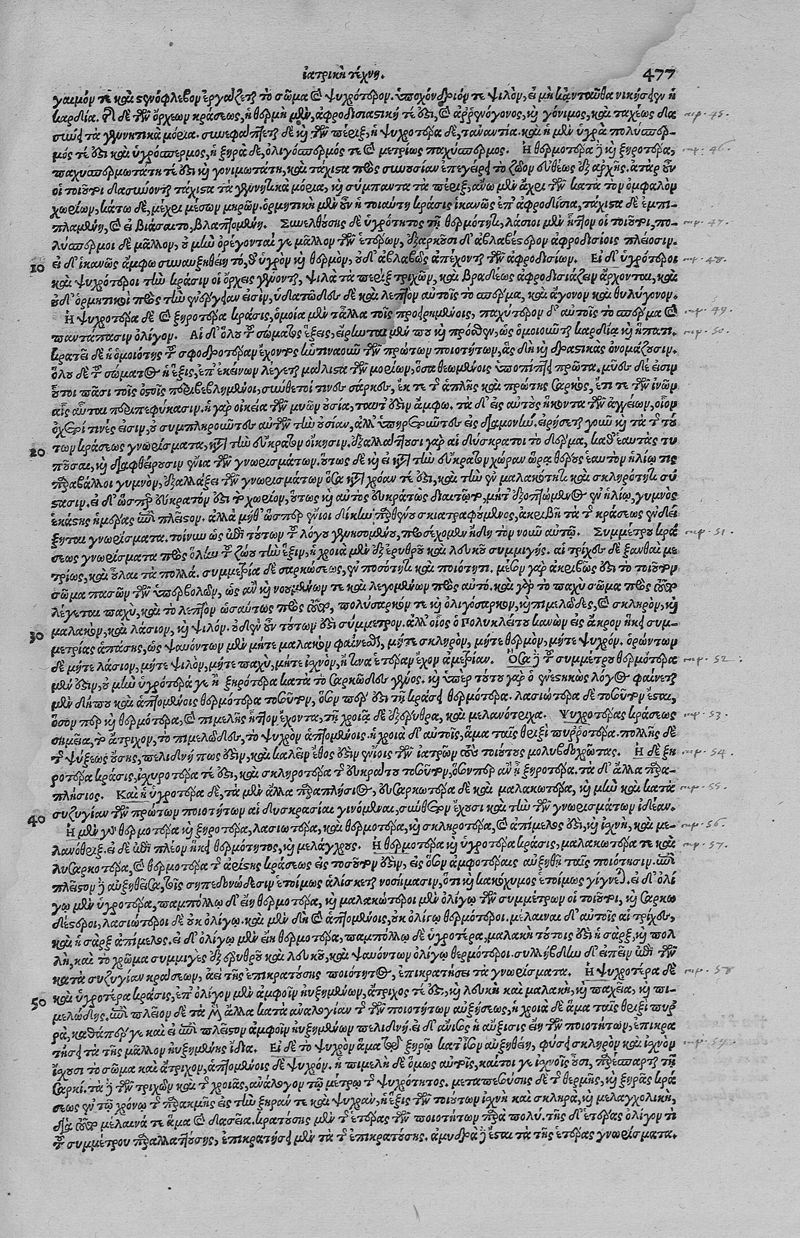 ἰατρικὴ τέχνη. 477
γαιμόν τε καὶ εὐρύφλεβον ἐργάζεται τὸ σῶμα καὶ ψυχρότερον. ὑποχόνδριόν τε ψιλὸν, εἰ μὴ κἀνταῦθα νικήσειεν ἡ
καρδία. Αἱ δὲ τῶν ὄρχεων κράσεως, ἡ θερμὴ μὲν, ἀφροδισιαστική τέ ἐστι, καὶ ἀρρενόγονος, καὶ γόνιμος, καὶ ταχέως δα
σύνει τὰ γεννητικὰ μόρια. συνεφάπτεται δὲ καὶ τῶν πέριξ, ἡ ψυχροτέρα δὲ, τἀναντία. καὶ ἡ μὲν ὑγρὰ πολύσπερ
μός τέ ἐστι καὶ ὑγρόσπερμος, ἡ ξηρὰ δὲ, ὀλιγόσπερμός τε καὶ μετρίως παχύσπερμος. Ἡ θερμοτέρα δὲ καὶ ξηροτέρα,
παχυσπερμοτάτη τέ ἐστι καὶ γονιμωτάτη, καὶ τάχιστα πρὸς συνουσίαν ἐπεγείρει τὸ ζῶον εὐθέως ἐξ ἀρχῆς. ἀτὰρ οὖν
οἱ τοιοῦτοι δασύνονται τάχιστα τὰ γεννητικὰ μόρια, καὶ σύμπαντα τὰ πέριξ, ἄνω μὲν ἄχρι τῶν κατὰ τὸν ὀμφαλὸν
χωρίων, κάτω δὲ, μέχρι μέσων μηρῶν. ὁρμητικὴ μὲν οὖν ἡ τοιαύτη κρᾶσις ἱκανῶς ἐπ' ἀφροδίσια, τάχιστα δὲ ἐμπι-
πλαμένη, καὶ εἰ βιάσαιτο, βλαπτομένη. Συνελθούσης δὲ ὑγρότητος τῇ θερμότητι, λάσιοι μὲν ἧττον οἱ τοιοῦτοι, πο-
λύσπερμοι δὲ μᾶλλον, οὐ μὴν ὀρέγονταί γε μᾶλλον τῶν ἑτέρων, ἐξαρκοῦσι δ' ἀβλαβέστερον ἀφροδισίοις πλείοσιν.
10 εἰ δ' ἱκανῶς ἄμφω συναυξηθείη τὸ, θ' ὑγρὸν καὶ θερμὸν, οὐδ' ἀβλαβῶς ἀπέχονται τῶν ἀφροδισίων. Εἰ δ' ὑγρότεροι
καὶ ψυχρότεροι τὴν κρᾶσιν οἱ ὄρχεις γένοιντο, ψιλὰ τὰ πέριξ τριχῶν, καὶ βραδέως ἀφροδισιάζειν ἄρχονται, καὶ
οὐδ' ὁρμητικοὶ πρὸς τὴν ἐνέργειάν εἰσιν, ὑδατῶδες δὲ καὶ λεπτὸν αὐτοῖς τὸ σπέρμα, καὶ ἄγονον καὶ θηλύγονον.
Ἡ ψυχροτέρα δὲ καὶ ξηροτέρα κρᾶσις, ὁμοία μὲν τἄλλα τοῖς προειρημένοις, παχύτερον δ' αὐτοῖς τὸ σπέρμα καὶ
παντάπασιν ὀλίγον. Αἱ δ' ὅλου τοῦ σώματος ἕξεις, εἴρηνται μέν που καὶ πρόσθεν, ὡς ὁμοιοῦνται καρδίᾳ καὶ ἥπατι.
κρατεῖ δὲ ἡ ὁμοιότης τοῦ σφοδροτέραν ἔχοντος ἡντιναοῦν τῶν πρώτων ποιοτήτων, ἃς δὴ καὶ δραστικὰς ὀνομάζουσιν.
ὅλου δὲ τοῦ σώματος ἡ ἕξις, ἐπ' ἐκείνων λέγεται μάλιστα τῶν μορίων, ὅσα θεωμένοις ὑποπίπτει πρῶτα. μῦες δέ εἰσιν
οὗτοι πᾶσι τοῖς ὀστοῖς περιβεβλημένοι, σύνθετοί τινες σάρκες, ἔκ τε τῆς ἁπλῆς καὶ πρώτης σαρκὸς, ἔτι τε τῶν ἰνῶν
αἷς αὗται περιπεφύκασιν. ἡ γὰρ οἰκεία τῶν μυῶν οὐσία, ταῦτ' ἐστὶν ἄμφω. τὰ δ' εἰς αὐτοὺς ἥκοντα τῶν ἀγγείων, οἷον
ὀχετοί τινές εἰσιν, οὐ συμπληροῦντες αὐτῶν τὴν οὐσίαν, ἀλλ' ὑπηρετοῦντες εἰς διαμονήν. εἰρήσεται γοῦν καὶ τὰ τού
20 των κράσεως γνωρίσματα, κατὰ τὴν εὔκρατον οἴκησιν. ἐξαλλάττουσι γὰρ αἱ δύσκρατοι τὸ δέρμα, καθ' ἑαυτὰς τυ
ποῦσαι, καὶ διαφθείρουσιν ἔνια τῶν γνωρισμάτων. οὕτως δὲ καὶ εἰ κατὰ τὴν εὔκρατον χώραν ὥρᾳ θέρους ἑαυτὸν ἡλίῳ τις
παραβάλλοι γυμνὸν, ἐξαλλάξει τῶν γνωρισμάτων ὅσα κατὰ χρόαν τέ ἐστι, καὶ τὴν ἐν μαλακότητι καὶ σκληρότητι σύ
στασιν. εἰ δ' ὥσπερ εὔκρατόν ἐστι τὸ χωρίον, οὕτως καὶ αὐτὸς εὐκράτως διαιτῷτο, μήτ' ἐξοπτώμενος ἐν ἡλίῳ, γυμνὸς
ἑκάστης ἡμέρας ἐπὶ πλεῖστον. ἀλλὰ μήθ' ὥσπερ ἔνιοι δίκην παρθένου σκιατραφούμενος, ἀκριβῆ τὰ τῆς κράσεως ἐνδεί
ξηται γνωρίσματα. τοίνυν ὡς ἐπὶ τούτων τοῦ λόγου γενησομένου, προσέχωμεν ἤδη τὸν νοῦν αὐτῷ. Συμμέτρου κρά
σεως γνωρίσματα πρὸς ὅλην τοῦ ζώου τὴν ἕξιν, ἡ χροιὰ μὲν ἐξ ἐρυθροῦ καὶ λευκοῦ συμμιγής. αἱ τρίχες δὲ ξανθαὶ με
τρίως, καὶ οὖλαι τὰ πολλά. συμμετρία δὲ σαρκώσεως, ἐν ποσότητι καὶ ποιότητι. μέσον γὰρ ἀκριβῶς ἐστὶ τὸ τοιοῦτον
σῶμα πασῶν τῶν ὑπερβολῶν, ὡς ἂν καὶ νοουμένων τε καὶ λεγομένων πρὸς αὐτό. καὶ γὰρ τὸ παχὺ σῶμα πρὸς τοῦτο
λέγεται παχὺ, καὶ τὸ λεπτὸν ὡσαύτως πρὸς τοῦτο, πολύσαρκόν τε καὶ ὀλιγόσαρκον, καὶ πιμελῶδες, καὶ σκληρὸν, καὶ
30 μαλακὸν, καὶ λάσιον, καὶ ψιλόν. οὐδὲν οὖν τούτων ἐστὶ σύμμετρον. ἀλλ' οἷος ὁ Πολυκλείτου κανὼν εἰς ἄκρον ἥκει συμ-
μετρίας ἁπάσης, ὡς ψαυόντων μὲν μήτε μαλακὸν φαίνεσθαι, μήτε σκληρὸν, μήτε θερμὸν, μήτε ψυχρόν. ὁρώντων
δὲ μήτε λάσιον, μήτε ψιλὸν, μήτε παχὺ, μήτε ἰσχνὸν, ἤ τινα ἑτέραν ἔχον ἀμετρίαν. Ὅσα δὲ τοῦ συμμέτρου θερμότερα
μέν ἐστιν, οὐ μὴν ὑγρότερά γε ἢ ξηρότερα κατὰ τὸ σαρκῶδες γένος. καὶ ὑπὲρ τούτου γὰρ ὁ ἐνεστηκὼς λόγος φαίνεται
μὲν δήπου καὶ ἁπτομένοις θερμότερα τοσοῦτον, ὅσον περ ἐστὶ τῇ κράσει θερμότερα. λασιώτερα δὲ τοσοῦτον ἔσται,
ὅσον περ καὶ θερμότερα, καὶ πιμελῆς ἧττον ἔχοντα, τῇ χροιᾷ δὲ ἐξέρυθρα, καὶ μελανότριχα. Ψυχροτέρας κράσεως
σημεῖα, τὸ ἄτριχον, τὸ πιμελῶδες, τὸ ψυχρὸν ἁπτομένοις. ἡ χροιὰ δ' αὐτοῖς, ἅμα ταῖς θριξὶ πυρροτέρα. πολλῆς δὲ
τῆς ψύξεως οὔσης, πελιδνή πως ἐστὶ, καὶ καλεῖν ἔθος ἐστὶν ἐνίοις τῶν ἰατρῶν τοὺς τοιούτους μολυβδοχρῶτας. Ἡ δὲ ξη
ροτέρα κρᾶσις, ἰσχνοτέρα τέ ἐστι, καὶ σκληροτέρα τοῦ εὐκράτου τοσοῦτον, ὅσονπερ ἂν ᾖ ξηροτέρα. τὰ δ' ἄλλα παρα-
πλήσιος. Καὶ ἡ ὑγροτέρα δὲ, τὰ μὲν ἄλλα παραπλήσιος, εὐσαρκοτέρα δὲ καὶ μαλακωτέρα, καὶ μὴν καὶ κατὰ
40 συζυγίαν τῶν πρώτων ποιοτήτων αἱ δυσκρασίαι γινόμεναι, σύνθετον ἔχουσι καὶ τὴν τῶν γνωρισμάτων ἰδέαν.
Ἡ μὲν οὖν θερμοτέρα καὶ ξηροτέρα, λασιωτέρα, καὶ θερμοτέρα, καὶ σκληροτέρα, καὶ ἀπίμελός ἐστι, καὶ ἰσχνὴ, καὶ με-
λανόθριξ. εἰ δὲ ἐπὶ πλέον ἥκει θερμότητος, καὶ μελάγχρους. Ἡ θερμοτέρα δὲ καὶ ὑγροτέρα κρᾶσις, μαλακωτέρα τε καὶ πο-
λυσαρκοτέρα, καὶ θερμοτέρα τῆς ἀρίστης κράσεως εἰς τοσοῦτόν ἐστιν, εἰς ὅσον ἀμφοτέραις αὐξηθῇ ταῖς ποιότησιν. ἐπὶ
πλεῖστον δὲ αὐξηθεῖσα, τοῖς σηπεδονώδεσιν ἑτοίμως ἁλίσκεται νοσήμασιν, ὅτι καὶ κακόχυμος ἑτοίμως γίγνεται. εἰ δ' ὀλί
γῳ μὲν ὑγροτέρα, παμπόλλῳ δ' εἴη θερμοτέρα, καὶ μαλακώτεροι μὲν ὀλίγῳ τῶν συμμέτρων οἱ τοιοῦτοι, καὶ σαρκω
δέστεροι, λασιώτεροι δὲ οὐκ ὀλίγῳ. καὶ μὲν δὴ καὶ ἁπτομένοις, οὐκ ὀλίγῳ θερμότεροι. μέλαιναι δ' αὐτοῖς αἱ τρίχες,
καὶ ἡ σὰρξ ἀπίμελος. εἰ δ' ὀλίγῳ μὲν εἴη θερμοτέρα, παμπόλλῳ δὲ ὑγροτέρα, μαλακὴ τούτοις ἐστὶν ἡ σὰρξ, καὶ πολ
λὴ, καὶ τὸ χρῶμα συμμιγὲς ἐξ ἐρυθροῦ καὶ λευκοῦ, καὶ ψαυόντων ὀλίγῳ θερμότεροι. συλλήβδην δ' εἰπεῖν ἐπὶ τῶν
κατὰ συζυγίαν κράσεων, ἀεὶ τῆς ἐπικρατούσης ποιότητος, ἐπικρατήσει τὰ γνωρίσματα. Ἡ ψυχροτέρα δὲ
50 καὶ ὑγροτέρα κρᾶσις, ἐπ' ὀλίγον μὲν ἀμφοῖν ηὐξημένων, ἄτριχός τέ ἐστι, καὶ λευκὴ καὶ μαλακὴ, καὶ παχεῖα, καὶ πι-
μελώδης. ἐπὶ πλεῖον δὲ τὰ μὲν ἄλλα κατὰ ἀναλογίαν τῆς τῶν ποιοτήτων αὐξήσεως, ἡ χροιὰ δὲ ἅμα ταῖς θριξὶ πυρ
ρὰ, καθάπερ γε καὶ εἰ ἐπὶ πλεῖστον ἀμφοῖν ηὐξημένων πελιδνή. εἰ δ' ἄνισος ἡ αὔξησις εἴη τῶν ποιοτήτων, ἐπικρα
τήσει τὰ τῆς μᾶλλον ηὐξημένης ἴδια. Εἰ δὲ τὸ ψυχρὸν ἅμα τῷ ξηρῷ κατ' ἴσον αὐξηθείη, φύσει σκληρὸν καὶ ἰσχνὸν
ἔχουσι τὸ σῶμα καὶ ἄτριχον, ἁπτομένοις δὲ ψυχρόν. ἡ πιμελὴ δὲ ὅμως αὐτοῖς, καίτοι γε ἰσχνοῖς οὖσι, παρέσπαρται τῇ
σαρκί. τὰ δὲ τῶν τριχῶν καὶ τῆς χροιᾶς, ἀνάλογον τῷ μέτρῳ τῆς ψυχρότητος. μεταπεσούσης δὲ τῆς θερμῆς, καὶ ξηρᾶς κρά
σεως ἐν τῷ χρόνῳ τῆς παρακμῆς εἰς τὴν ξηράν τε καὶ ψυχρὰν, ἡ ἕξις τῶν τοιούτων ἰσχνὴ καὶ σκληρὰ, καὶ μελαγχολικὴ,
διὰ τοῦτο μέλαινά τε ἅμα καὶ δασεῖα. κρατούσης μὲν δὲ τῆς ἑτέρας τῶν ποιοτήτων παρὰ πολύ. τῆς δ' ἑτέρας ὀλίγον τι
τοῦ συμμέτρου παραλλαττούσης, ἐπικρατήσει μὲν τὰ τῆς ἐπικρατούσης. ἀμυδρὰ δὲ ἔσται τὰ τῆς ἑτέρας γνωρίσματα.